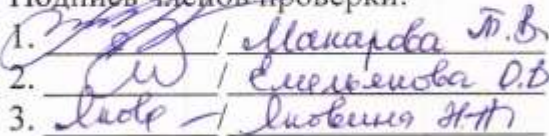 Подписи членов проверки:
1. / Макарова Т.В.
2. / Емельянова О.В
3. / Яковина Н.А